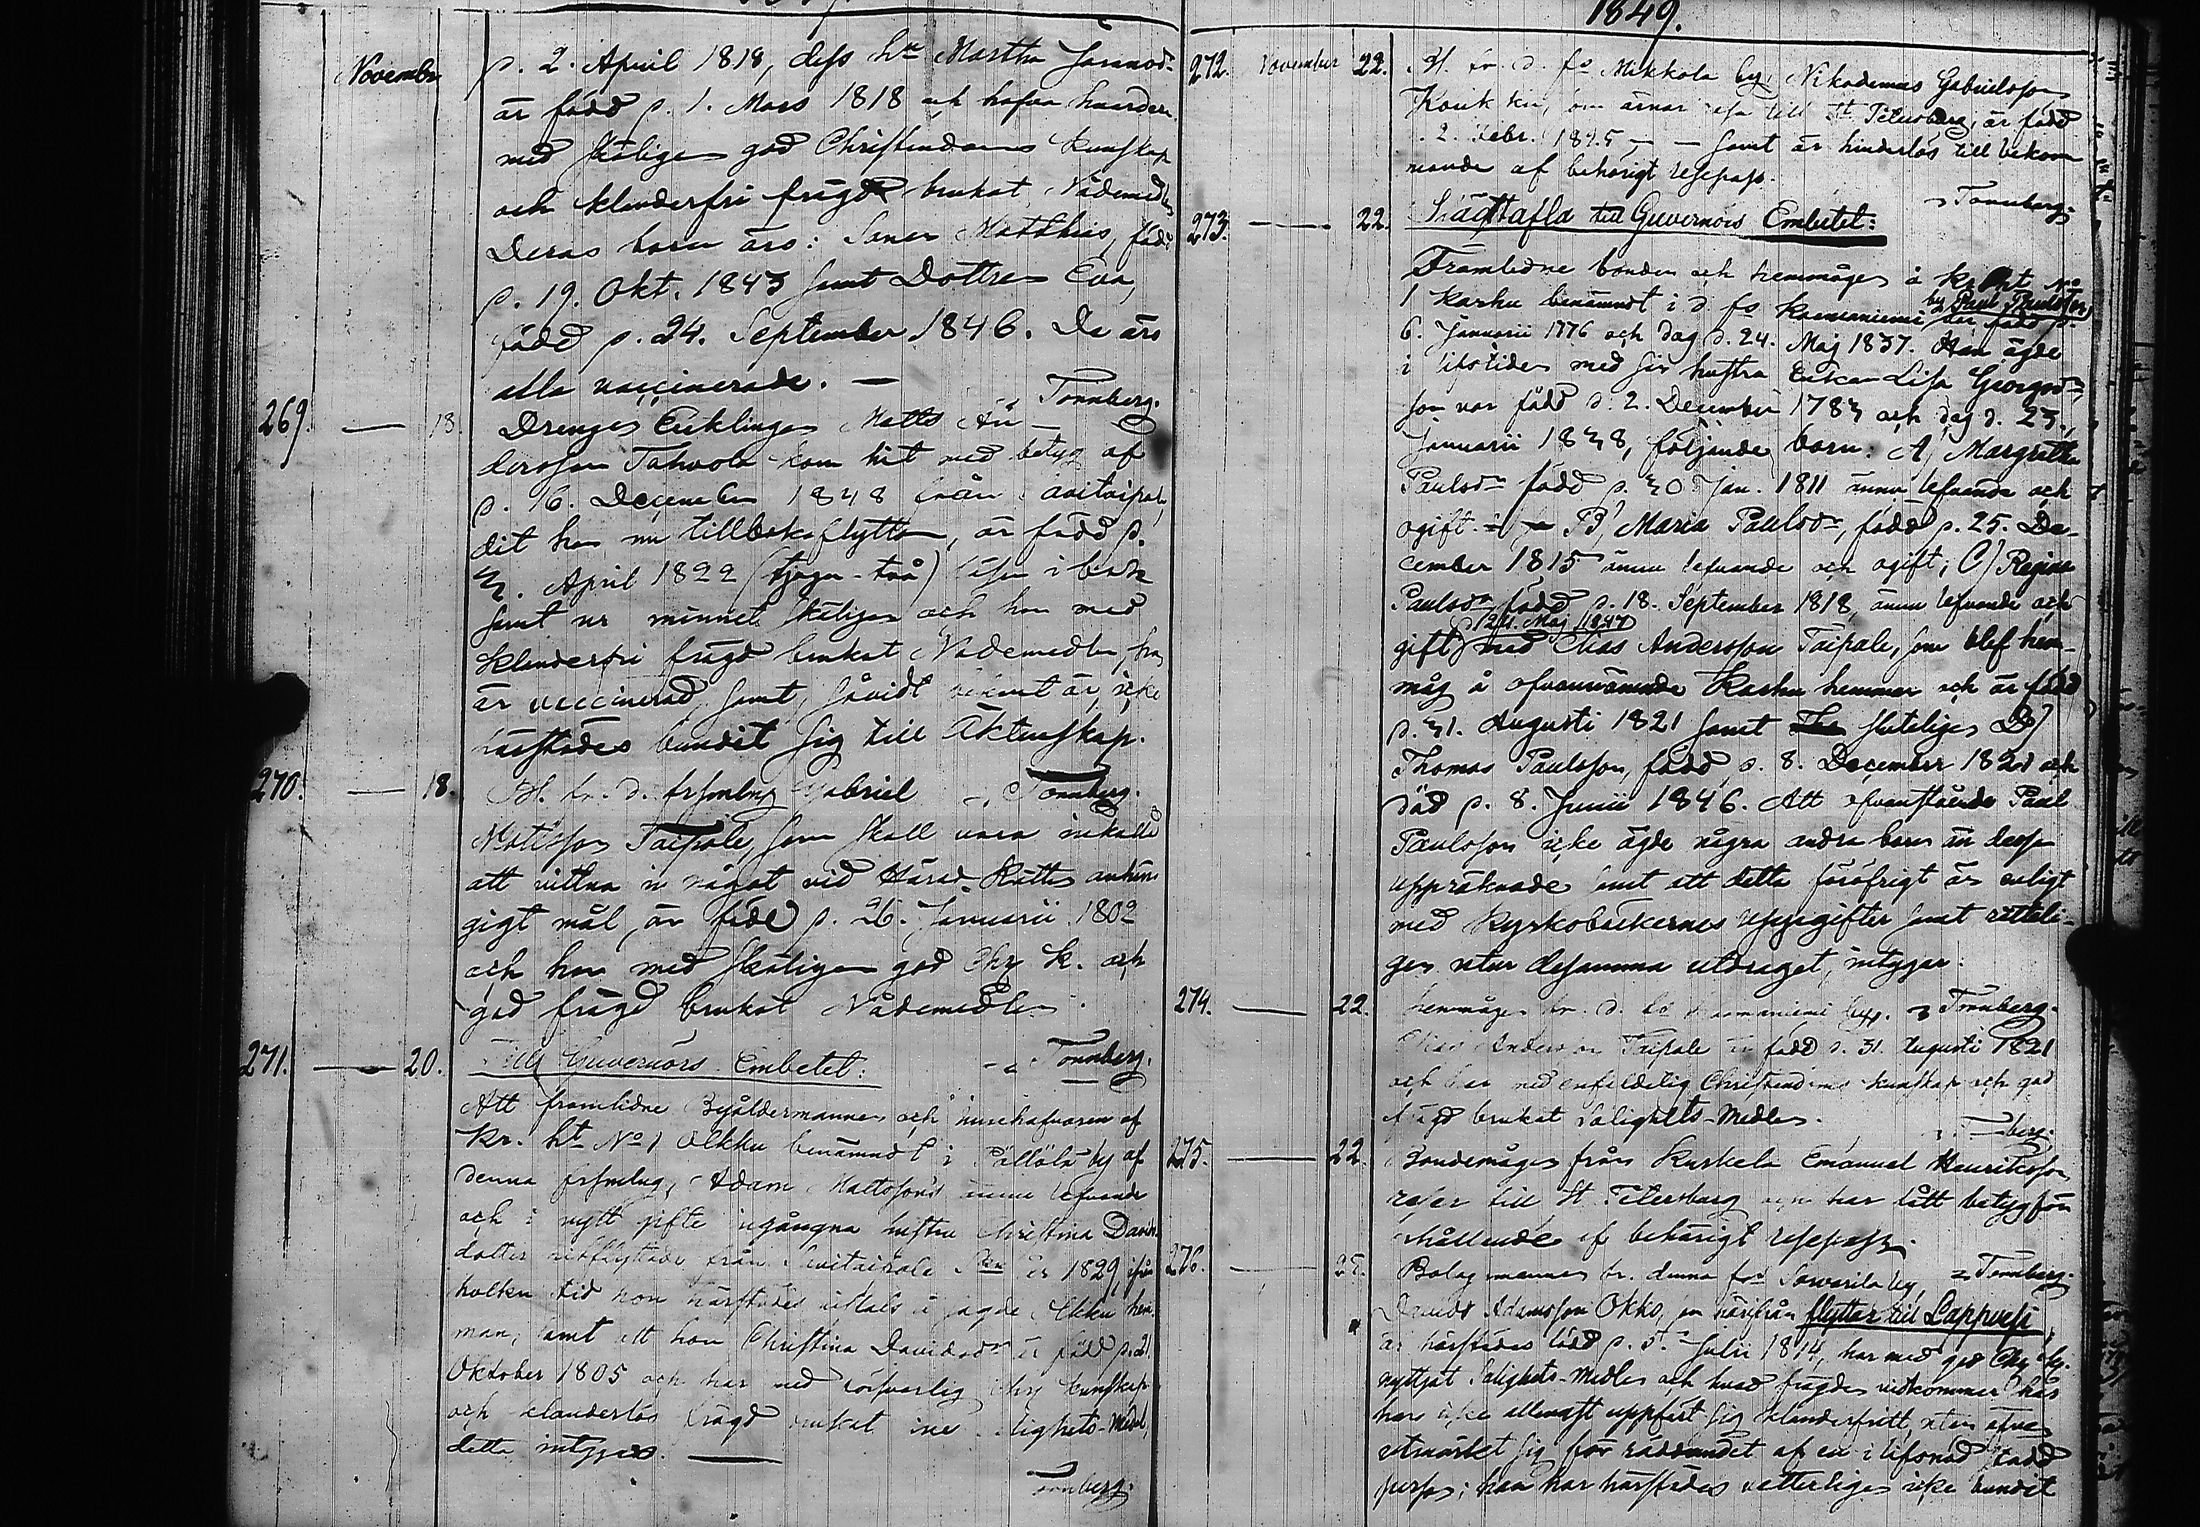 1849.
November
d. 2. April 1818, dess h. Martha Göransdr
är född d. 1. Mars 1818 och hafva hvardera
med skäligen god Christendoms kunskap
och klanderfri frägd brukat Nådemedlen
Deras barn äro: Sonen Matthias, född
d. 19. Okt. 1843 samt Dottren Eva,
född d. 24. September 1846. De äro
alla vaccinerade. —
Tonnberg.
269. — 18. Drengen Enklingen Matts An-
dersson Tahvola kom hit med betyg af
d. 16. December 1848 från Savitaipale,
dit han nu tillbakaflyttar, är född d.
3. April 1822 (tjugu-två) läser i bok
samt ur minnet skäligen och har med
klanderfri frägd brukat Nådemedlen, han
är vaccinerad samt, såvidt bekant är, icke
härstädes bundit sig till Äktenskap.
Tonnberg.
270. — 18. Bl. fr. d. frsmlng Gabriel
Mattsson Taipale, som skall vara inkallad
att vittna i något vid Härads Rätten anhän-
gigt mål, är född d. 26. Januarii 1802
och har med skäligen god Chr. k. och
god frägd brukat Nådemedlen.
Tonnberg.
271. — 20. Till Guvernörs Embetet:
Att framlidne Byåldermannen och innehafvaren af
Kr. ht No 1 Olkku benämndt i Pöllölä by af
denna frsmlng, Adam Mattssons ännu lefvande
och i nytt gifte ingångna hustru Christina Davids
dotter inflyttade från Savitaipale År 1829, ifrån
hvilken tid hon härstädes vistats å sagde Olkku hem
man, samt att hon Christina Davidsdr är född d. 21.
Oktober 1805 och har med försvarlig Chr. kunskap
och klanderlös frägd brukat sine Salighets-Medel,
detta intygas. —
Tonnberg.
272. November 22. Bl. fr. d. fs Mikkola by, Nikodemus Gabrielsson
Koukkin, som ärnar resa till St. Petersburg, är född
d. 2. Febr. 1825 — — samt är hinderlös till bekom
mande af behörigt respass.
Tonnberg.
273. — 22. Slägttafla till Guvernörs Embetet:
Framlidne bonden och hemmågen å Kr. ht No
1 Karhu benämndt i d. fs Kaemaniemi by Paul Paulsson är född d.
6. Januarii 1776 och dog d. 24. Maj 1837. Han ägde
i lifstiden med sin hustru Enkan Lisa Georgsdr
som var född d. 2. December 1783 och dog d. 23.
Januarii 1838, följande barn: A) Margretha
Paulsdr född d. 30 Jan. 1811 ännu lefvande och
ogift. B) Maria Paulsdr, född d. 25. De-
cember 1815 ännu lefvande och ogift; C) Regina
Paulsdr född d. 18. September 1818, ännu lefvande och
d. 24. Maj 1847
gift med Elias Andersson Taipale, som blef hem-
måg å ofvannämnde Karhu hemman och är född
d. 31. Augusti 1821 samt sluteligen D)
Thomas Paulsson, född d. 8. December 1821 och
död d. 8. Junii 1846. Att ofvanstående Paul
Paulsson icke ägde några andra barn än dessa
uppräknade samt att detta föröfrigt är enligt
med Kyrkobökernes uppgifter samt rätteli-
gen utur desamma utdraget, intygar.
Tonnberg.
274. — 22. Hemmågen fr. d. fs Kaemaniemi by.
Elias Andersson Taipale är född d. 31. Augusti 1821
och har med enfaldelig Christendoms kunskap och god
frägd brukat Salighets-Medlen.
Tonnberg.
275. — 22. Bondemågen från Kurkela Emanuel Henriksson
reser till St. Petersburg och har fått betyg för
erhållande af behörigt respass.
Tonnberg.
276. — 25. Bolagsmannen fr. denna frs Sovarila by,
David Adamsson Okko, som härifrån flyttar till Lappvesi,
är härstädes född d. 5. Julii 1814, har med god Chr. k.
nyttjat Salighets-Medlen och hvad frägden vidkommer så
har icke allenast uppfört sig klanderfritt, utan äfven
utmärkt sig för räddandet af en i lifsnöd stadd
person; han har härstädes vetterligen icke bundit